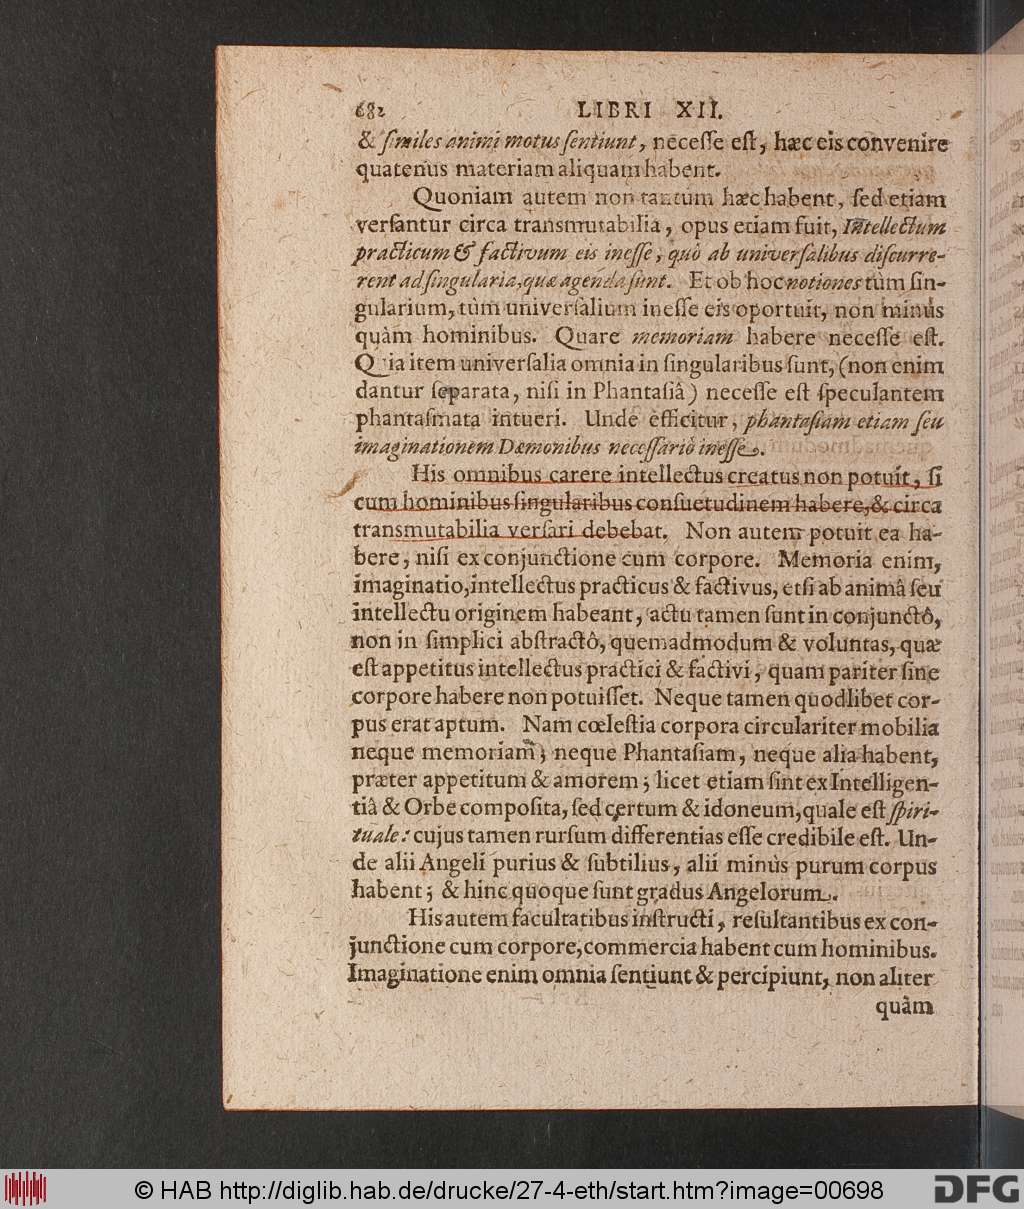 682 LIBRI XII.
& ſimiles animi motus ſentiunt, neceſſe eſt, hæc eis convenire
quatenus materiam aliquam habent.
Quoniam autem non tantùm hæc habent, ſed etiam
verſantur circa transmutabilia, opus etiam fuit, Intellectum
practicum & factivum eis ineſſe, quò ab univerſalibus diſcurre-
rent ad ſingularia, quæ agenda ſunt. Et ob hoc notiones tùm ſin-
gularium, tùm univerſalium ineſſe eis oportuit, non minùs
quàm hominibus. Quare memoriam habere neceſſe eſt.
Quia item univerſalia omnia in ſingularibus ſunt, (non enim
dantur ſeparata, niſi in Phantaſiâ) neceſſe eſt ſpeculantem
phantaſmata intueri. Unde efficitur, phantaſiam etiam ſeu
imaginationem Dæmonibus neceſſariò ineſſe.
His omnibus carere intellectus creatus non potuit, ſi
cum hominibus ſingularibus conſuetudinem habere, & circa
transmutabilia verſari debebat. Non autem potuit ea ha-
bere, niſi ex conjunctione cum corpore. Memoria enim,
imaginatio, intellectus practicus & factivus, etſi ab animâ ſeu
intellectu originem habeant, actu tamen ſunt in conjunctô,
non in ſimplici abſtractô, quemadmodum & voluntas, quæ
eſt appetitus intellectus practici & factivi, quam pariter ſine
corpore habere non potuiſſet. Neque tamen quodlibet cor-
pus erat aptum. Nam cœleſtia corpora circulariter mobilia
neque memoriam, neque Phantaſiam, neque alia habent,
præter appetitum & amorem; licet etiam ſint ex Intelligen-
tiâ & Orbe compoſita, ſed certum & idoneum, quale eſt ſpiri-
tuale: cujus tamen rurſum differentias eſſe credibile eſt. Un-
de alii Angeli purius & ſubtilius, alii minùs purum corpus
habent; & hinc quoque ſunt gradus Angelorum.
His autem facultatibus inſtructi, reſultantibus ex con-
junctione cum corpore, commercia habent cum hominibus.
Imaginatione enim omnia ſentiunt & percipiunt, non aliter
quàm
© HAB http://diglib.hab.de/drucke/27-4-eth/start.htm?image=00698
DFG